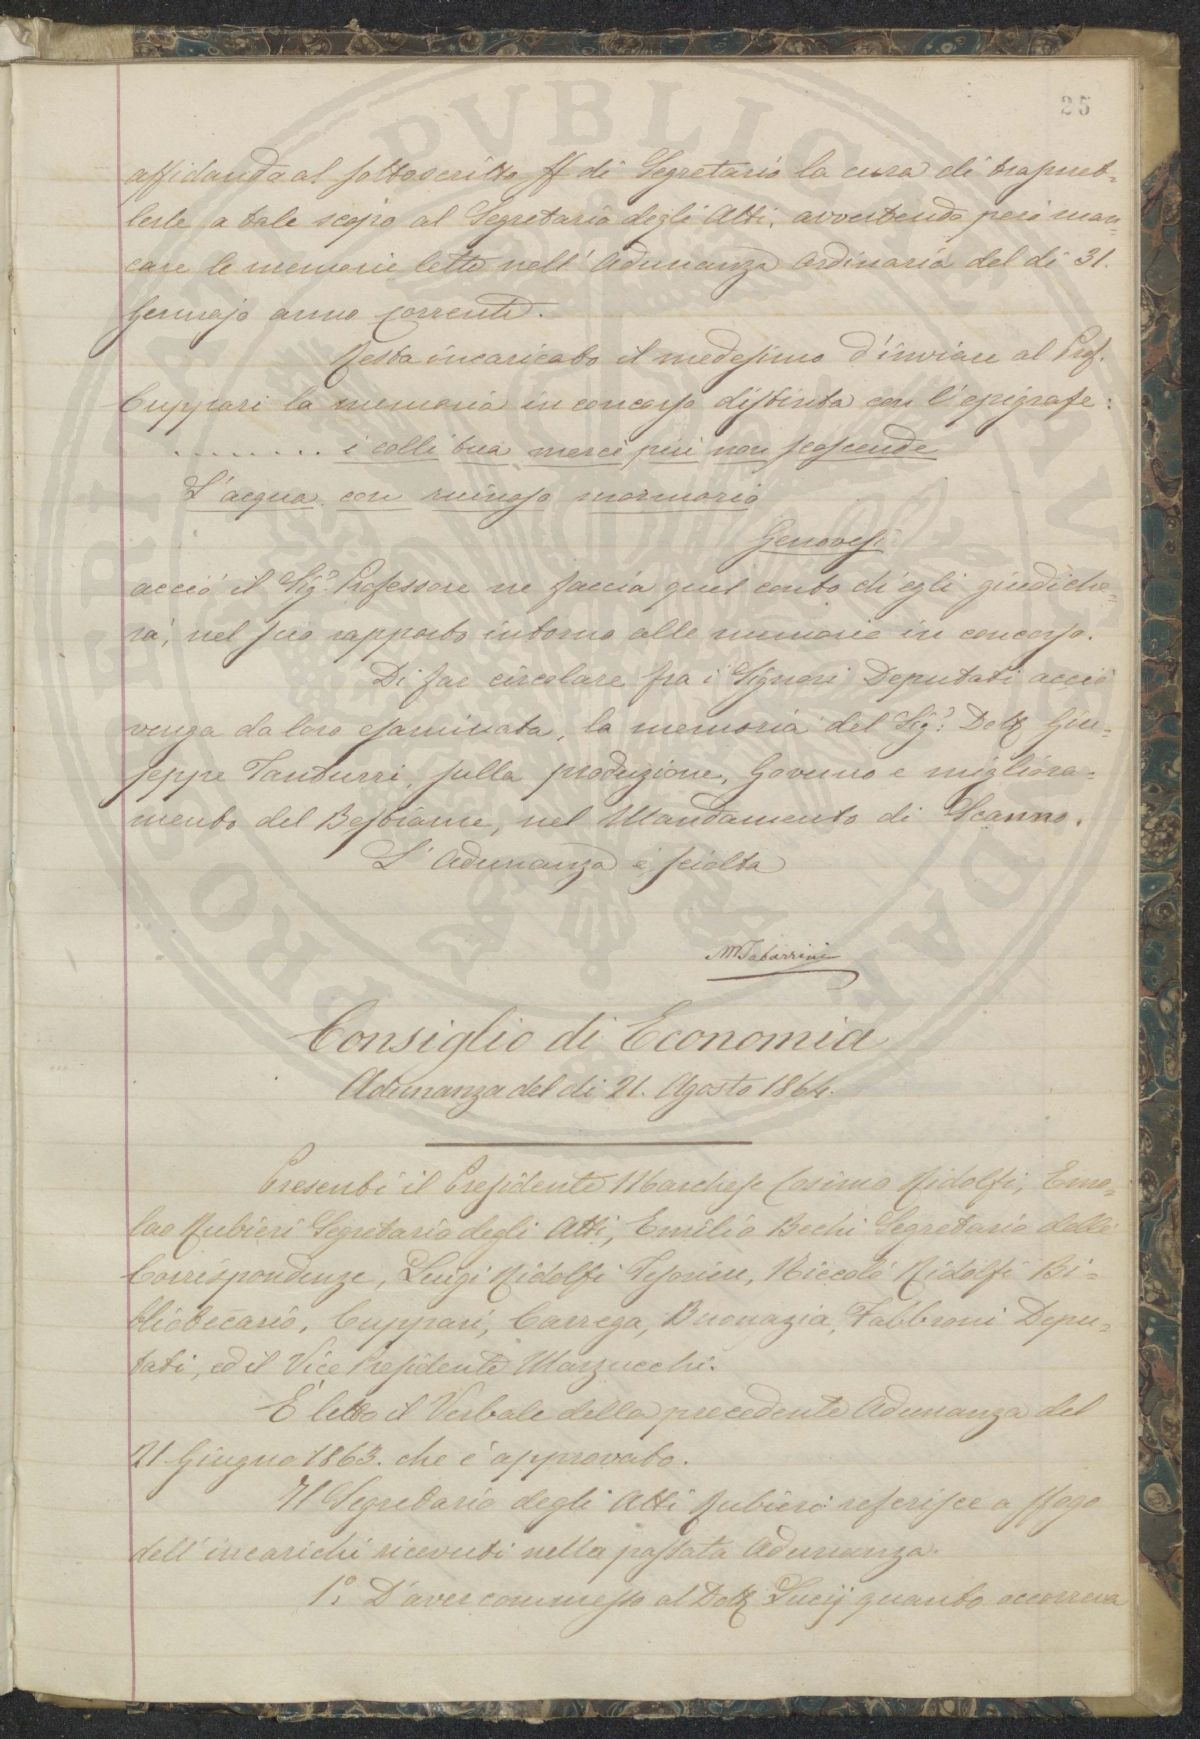 25
affidando al sottoscritto ff di Segretario la cura di trasmet=
terle a tale scopo al Segretario degli Atti, avvertendo però man=
care le memorie lette nell' Adunanza Ordinaria del dì 31.
Gennajo anno corrente.
Resta incaricato il medesimo d'inviare al Prof.
Cuppari la memoria in concorso distinta con l'epigrafe:
. . . . . . . . i colli tua mercè più non scoscende
L'acqua con ruinoso mormorio
Genovesi
acciò il Sig.r Professore ne faccia quel conto ch'egli giudiche=
rà, nel suo rapporto intorno alle memorie in concorso.
Di far circolare fra i Signori Deputati acciò
venga da loro esaminata, la memoria del Sig.r Dott Giu=
seppe Tanturri, sulla produzione, Governo e migliora=
mento del Bestiame, nel Mandamento di Scanno.
L'Adunanza è sciolta
M Tabarrini
Consiglio di Economia
Adunanza del dì 21. Agosto 1864.
Presenti il Presidente Marchese Cosimo Ridolfi, Emo=
lao Rubieri Segretario degli Atti, Emilio Bechi Segretario delle
Corrispondenze, Luigi Ridolfi Tesoriere, Niccolò Ridolfi Bi=
bliotecario, Cuppari, Carrega, Buonazia, Fabbroni Depu=
tati, ed il Vice Presidente Marzucchi.
È letto il Verbale della precedente Adunanza del
21 Giugno 1863. che è approvato.
Il Segretario degli Atti Rubieri referisce a sfogo
dell'incarichi ricevuti nella passata Adunanza.
1.° D'aver commesso al Dott Lucij quanto occorreva
PVBLICA